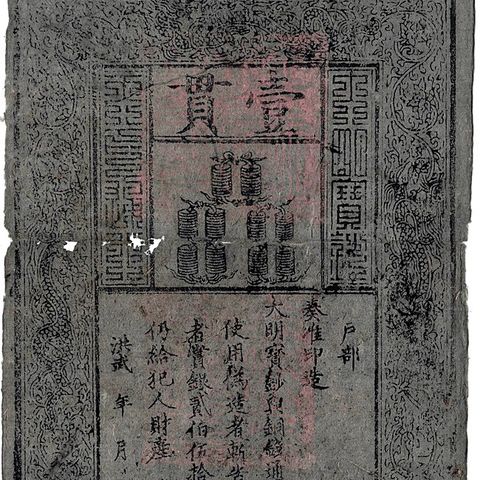 壹貫
大明寶鈔
天下通行
户部
奏准印造
大明寶鈔與銅錢通
使用偽造者斬告
者賞銀貳伯伍拾
仍給犯人財產
洪武 年 月